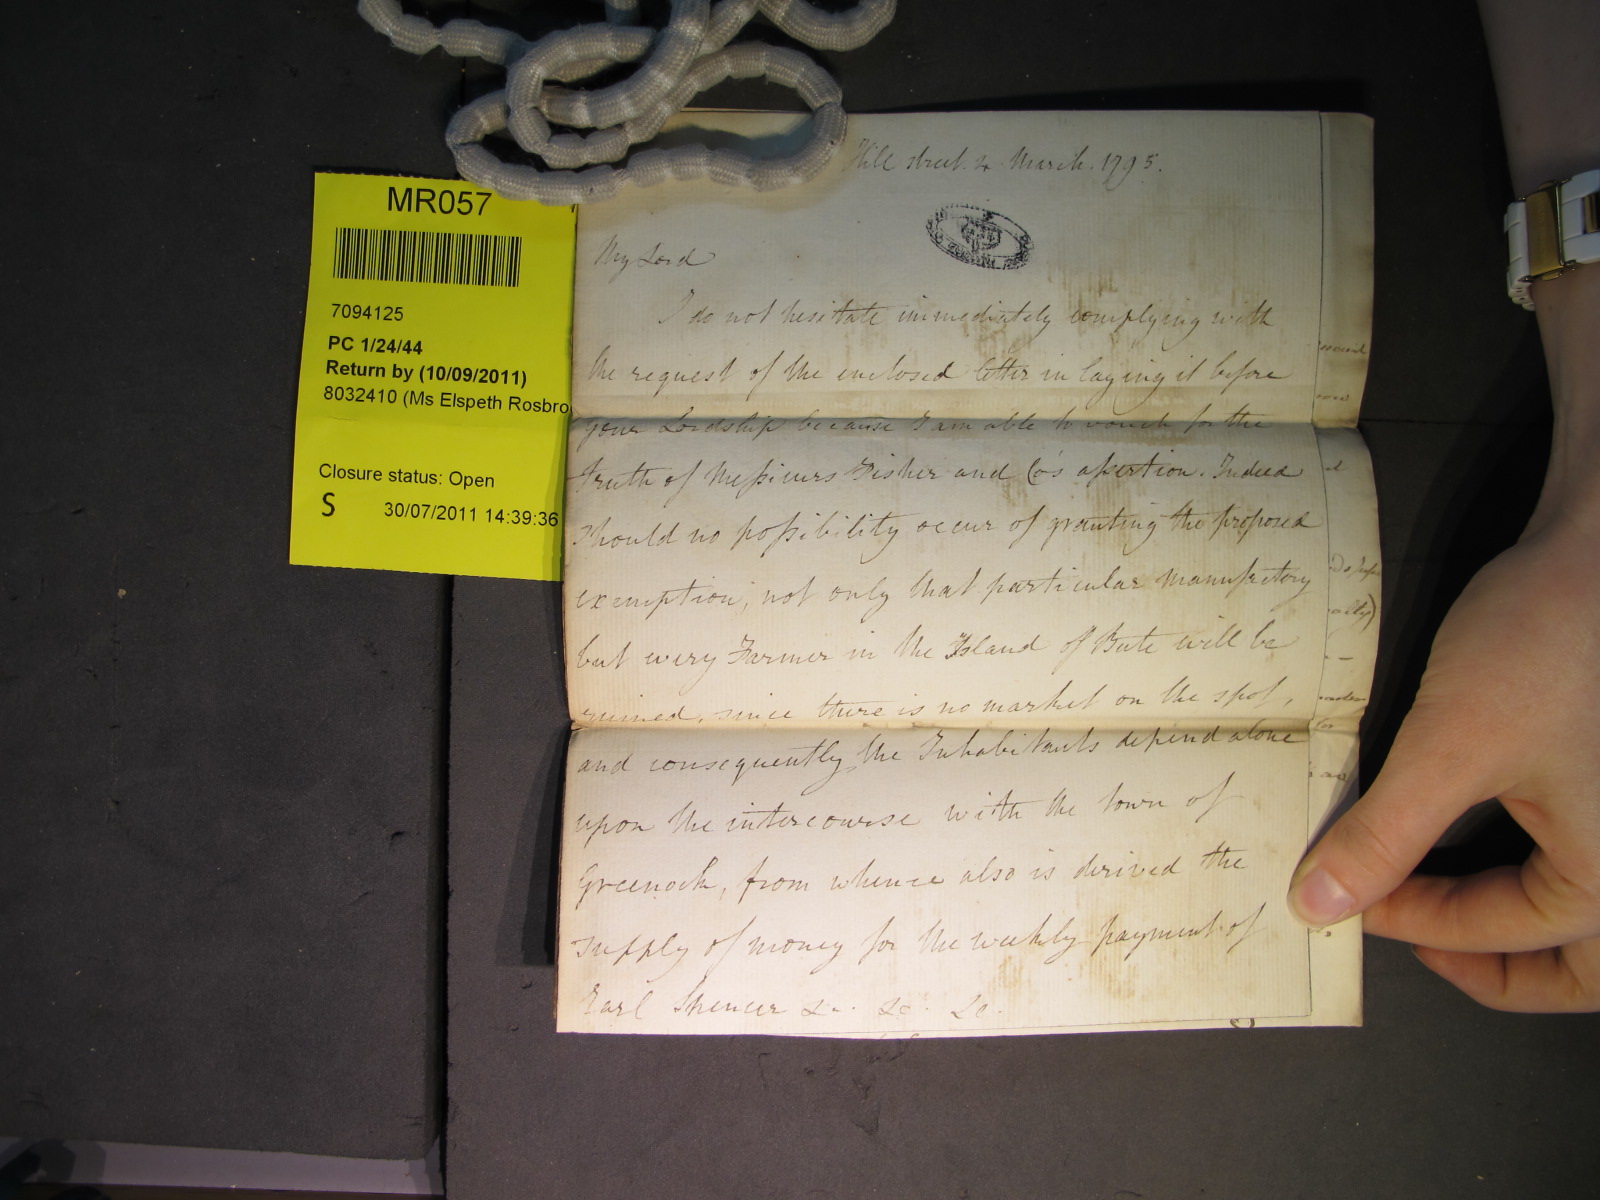 MR057
7094125
PC 1/24/44
Return by (10/09/2011)
8032410 (Ms Elspeth Rosbro
Closure status: Open
S 30/07/2011 14:39:36
Hill street. 4 March. 1795.
My Lord
I do not hesitate immediately complying with
the request of the enclosed letter in laying it before
your Lordship because I am able to vouch for the
truth of Messieurs Fisher and Co's assertion. Indeed
should no possibility occur of granting the proposed
exemption, not only that particular manufactory
but every Farmer in the Island of Bute will be
ruined, since there is no market on the spot,
and consequently the Inhabitants depend alone
upon the intercourse with the town of
Greenock, from whence also is derived the
supply of money for the weekly payment of
Earl Spencer &c. &c. &c.